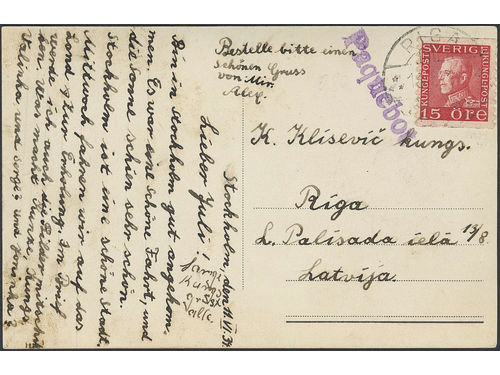 Stockholm, den 11.VI.31.
Lieber Juli!
Bin in Stockholm gut angekom-
men. Es war eine schöne Fahrt, und
die Sonne schien sehr schön.
Stockholm ist eine schöne Stadt.
Mittwoch fahren wir auf das
Land zur Erholung. Im Brief
werde ich auch die Bilder mitschik
ken. Was macht
Valinka und Serge? und
Bestelle bitte einen
schönen Gruss
von Mir
Alex.
Paquebot
RIGA
SVERIGE
KUNGL.POST
KUNGL.POST
15 ÖRE
K. Klisevič kungs.
Rīga
L. Palisada ielā 13/8
Latvija.